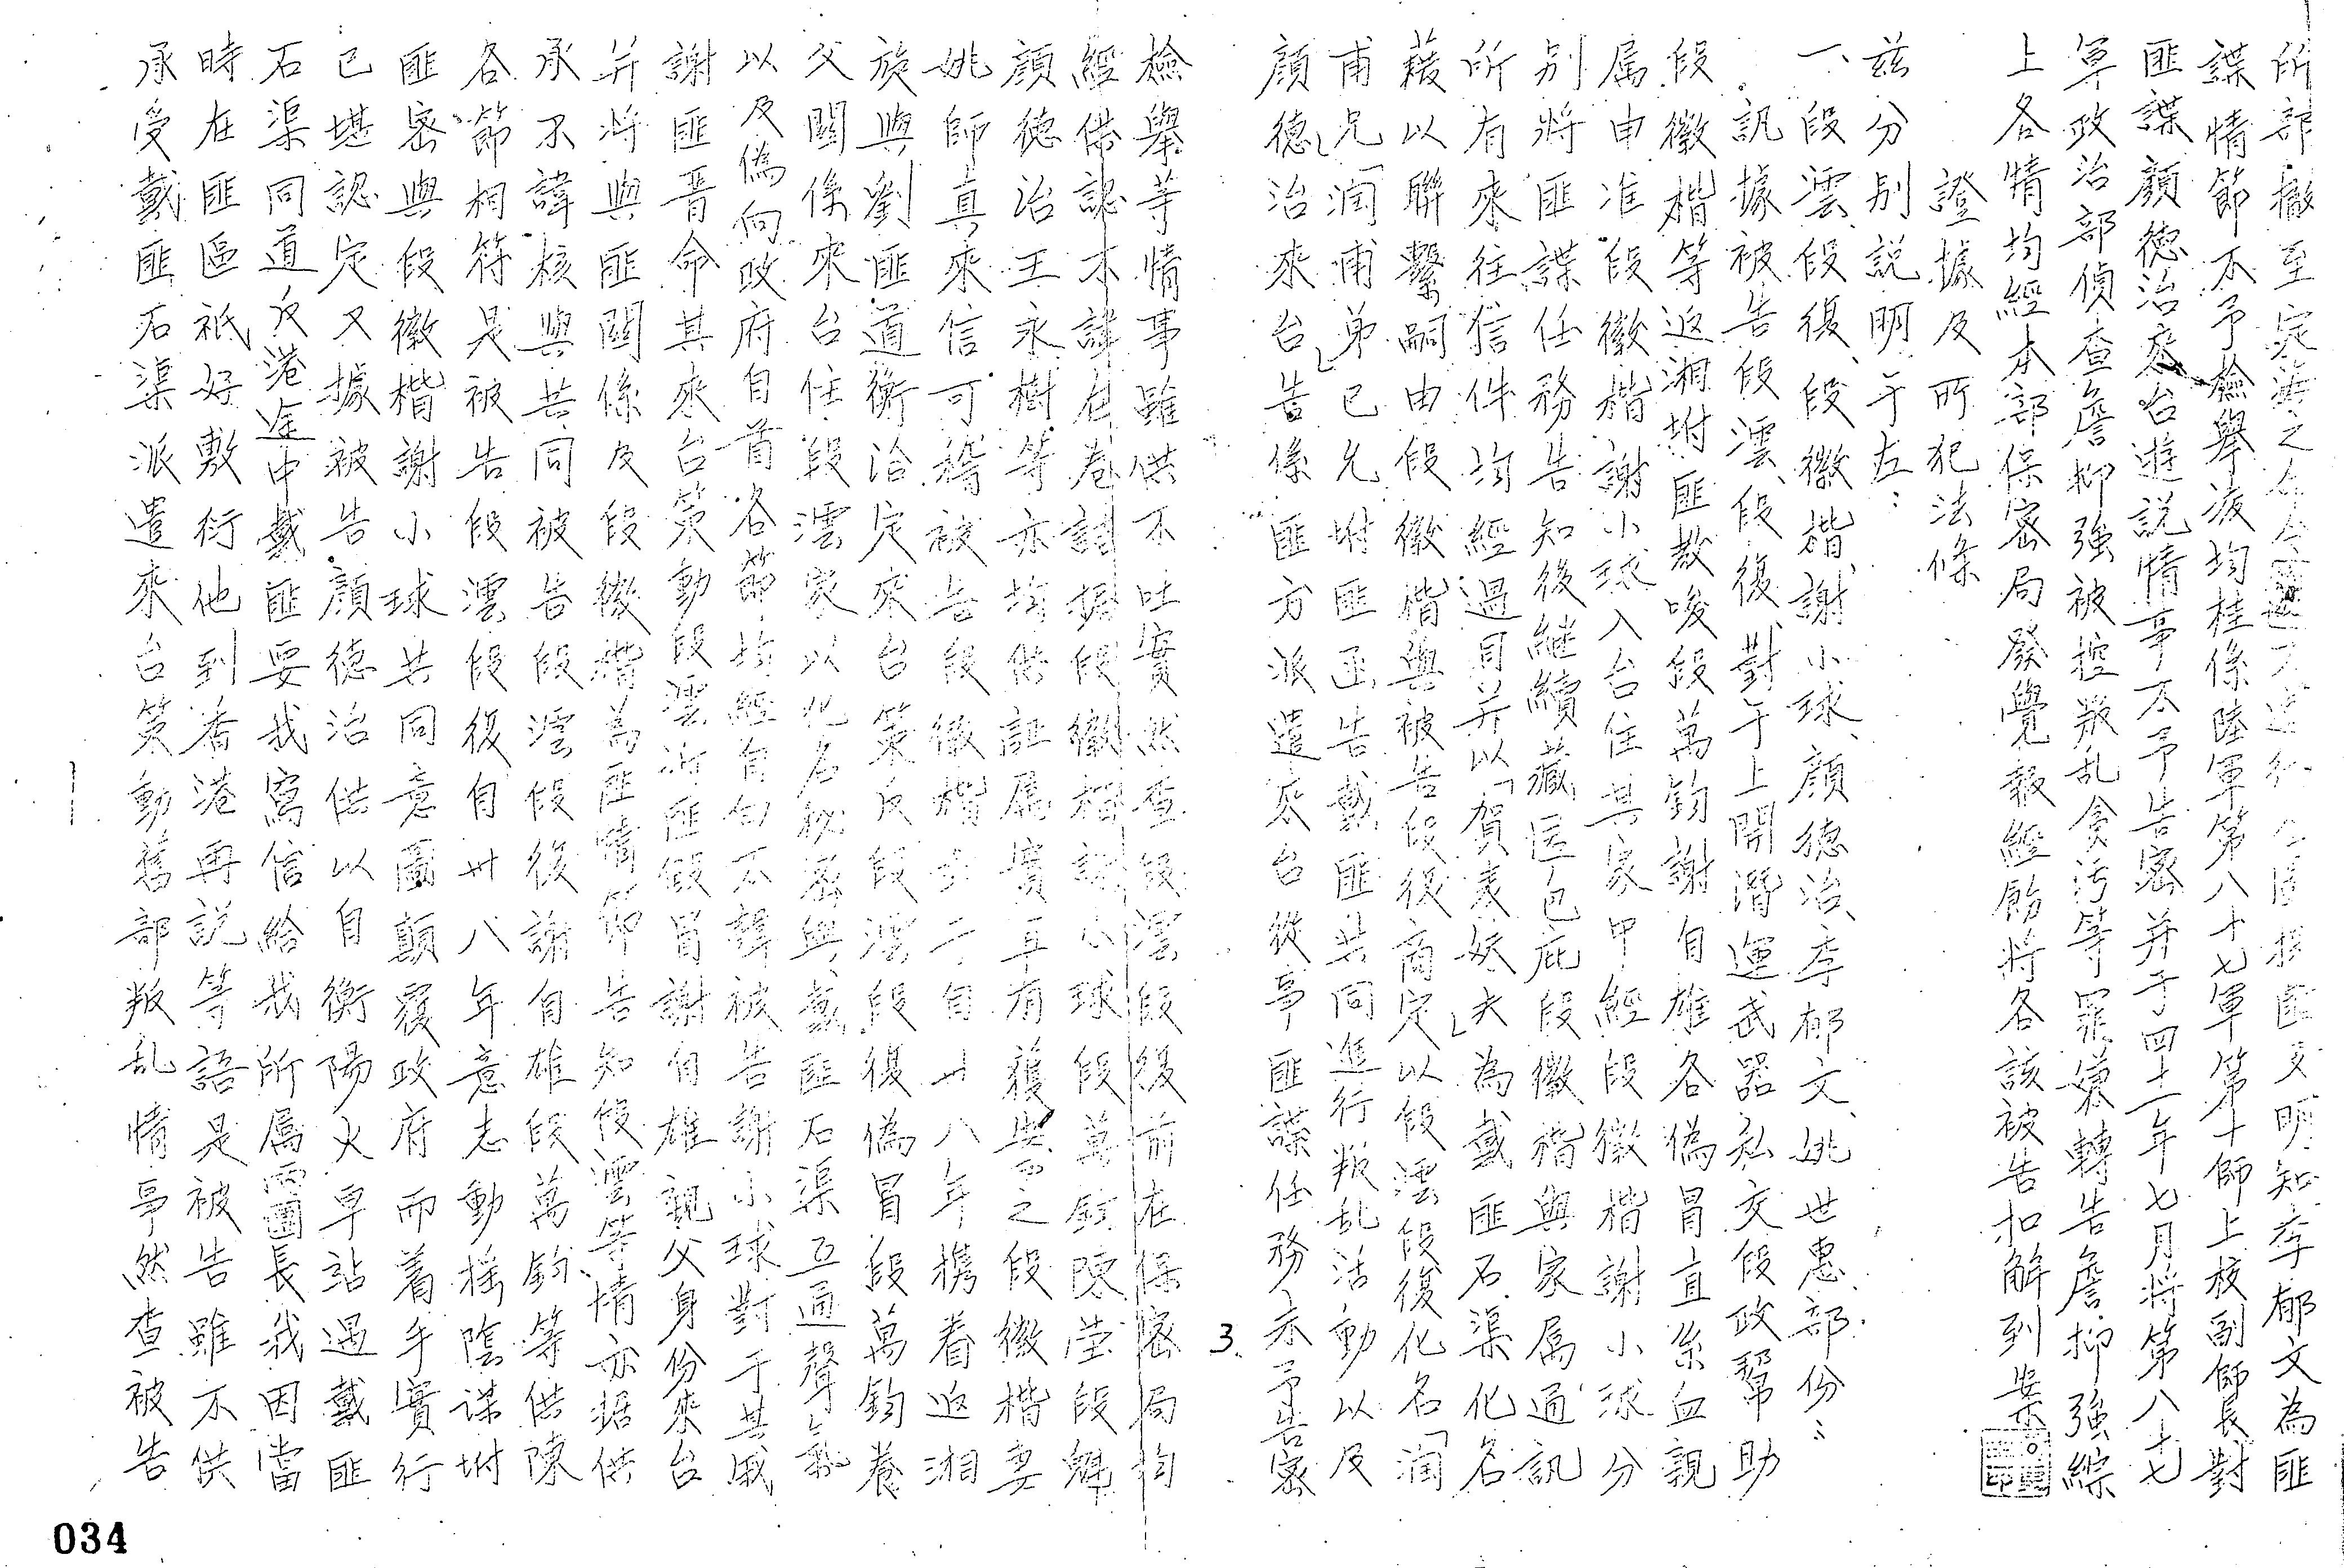 所部撤至定海之 明知李郁文為匪
諜情節不予檢舉沒均桂係陸軍第八十七軍第十師上校副師長對
匪諜顏德治來台遊說情事不予告密并于四十一年七月將第八十七
軍政治部偵查詹抑強被控叛乱貪污等罪嫌轉告詹抑強綜
上各情均經本部保密局發覺報經飭將各該被告扣解到案
證據及所犯法條
茲分別説明于左：
一、段澐、段復、段徽楷、謝小球、顏德治、李郁文、姚世惠部份：
訊據被告段澐、段復、對于上開潛運武器私交段政幫助
段徽楷等返湘坿匪教唆段萬鈞謝自雄各偽冒直系血親
属申准段徽楷謝小球入台住其家中經段徽楷謝小球分
别將匪諜任務告知後継續藏匿包庇段徽楷與家属通訊
所有來往信件均經過目并以「賀表妖夫」為戴匪石渠化名
藉以聯繫嗣由段徽楷與被告段復商定以段澐段復化名「润
甫兄」「润甫弟」已允坿匪函告戴匪共同進行叛乱活動以及
顏德治來台告係匪方派遣來台從亊匪諜任務亦予告密
3.
檢舉等情事雖供不吐實然查段澐段復前在保密局均
經供認不諱在卷詰据段徽楷謝小球段萬鈞陳莹段魁
顏德治王永樹等亦均供証属實並有獲案之段徽楷妻
姚師真來信可稽被告段徽楷於二自卅八年携眷返湘
旋與劉匪道衡洽定來台策反段澐段復偽冒段萬鈞養
父關係來台住段澐家以化名秘密與戴匪石渠互通聲氣
以及偽向政府自首各節均經自白不諱被告謝小球對于其戚
謝匪晋命其來台策動段澐坿匪假冒謝自雄親父身份來台
并將與匪關係及段徽楷為匪情節告知段澐等情亦据供
承不諱核與共同被告段澐段復謝自雄段萬鈞等供陳
各節相符是被告段澐段復自卅八年意志動摇陰謀坿
匪密與段徽楷謝小球共同意圖顛覆政府而着手實行
已堪認定又據被告顏德治供以自衡陽火車站遇戴匪
石渠同道反港途中戴匪要我寫信給我所属兩團長我因當
時在匪區祇好敷衍他到香港再説等語是被告雖不供
承受戴匪石渠派遣來台策動舊部叛乱情亊然查被告
034